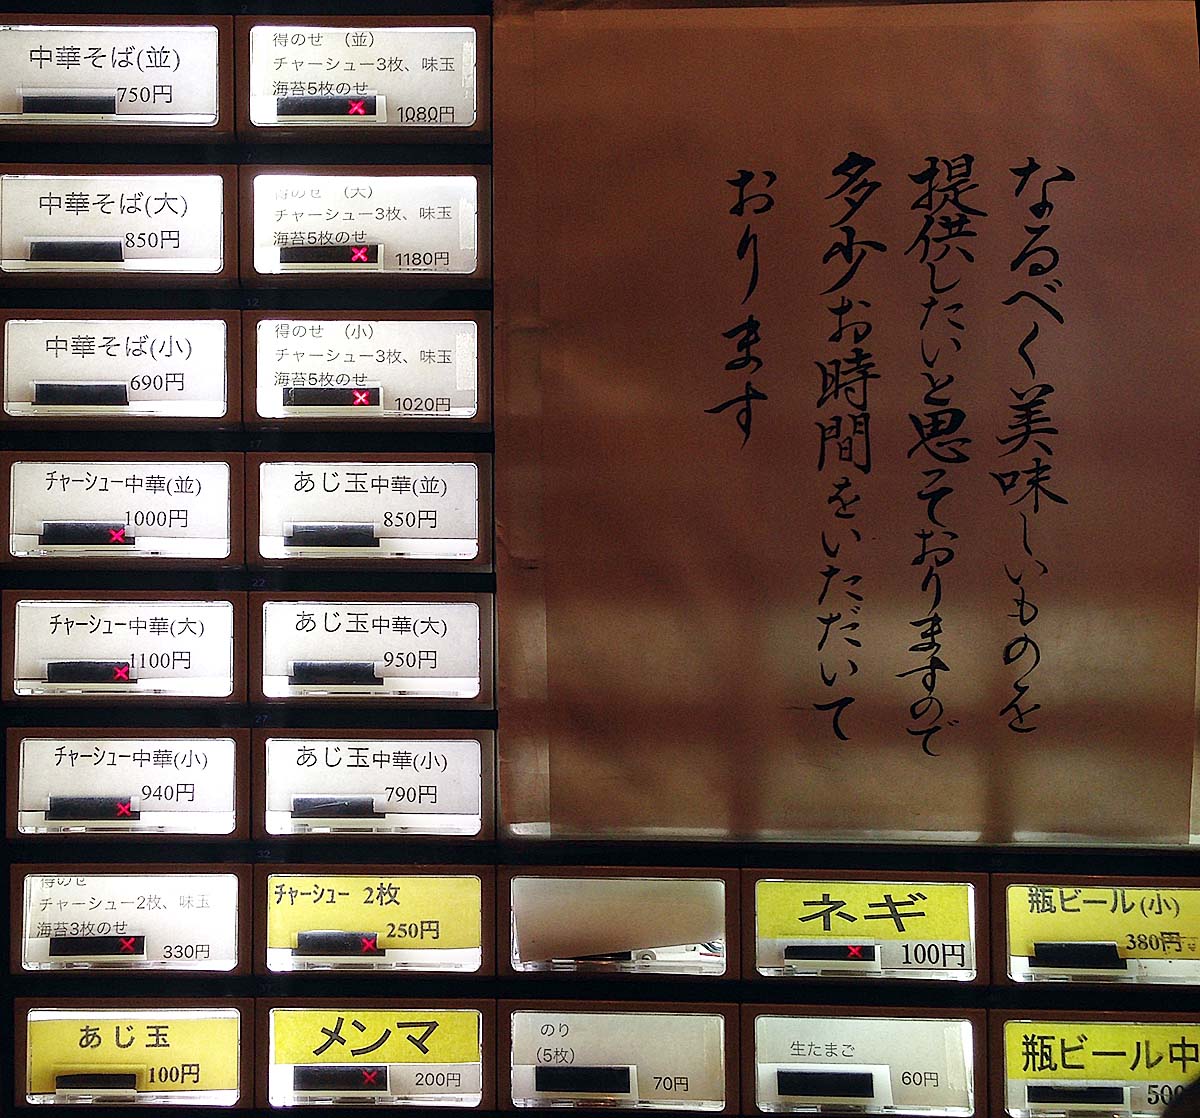 中華そば(並)
750円
得のせ (並)
チャーシュー3枚、味玉
海苔5枚のせ
1080円
中華そば(大)
850円
得のせ (大)
チャーシュー3枚、味玉
海苔5枚のせ
1180円
中華そば(小)
690円
得のせ (小)
チャーシュー3枚、味玉
海苔5枚のせ
1020円
チャーシュー中華(並)
1000円
あじ玉中華(並)
850円
チャーシュー中華(大)
1100円
あじ玉中華(大)
950円
チャーシュー中華(小)
940円
あじ玉中華(小)
790円
なるべく美味しいものを
提供したいと思っておりますので
多少お時間をいただいて
おります
得のせ
チャーシュー2枚、味玉
海苔3枚のせ
330円
チャーシュー 2枚
250円
ネギ
100円
瓶ビール(小)
380円
あじ玉
100円
メンマ
200円
のり
(5枚)
70円
生たまご
60円
瓶ビール中
500